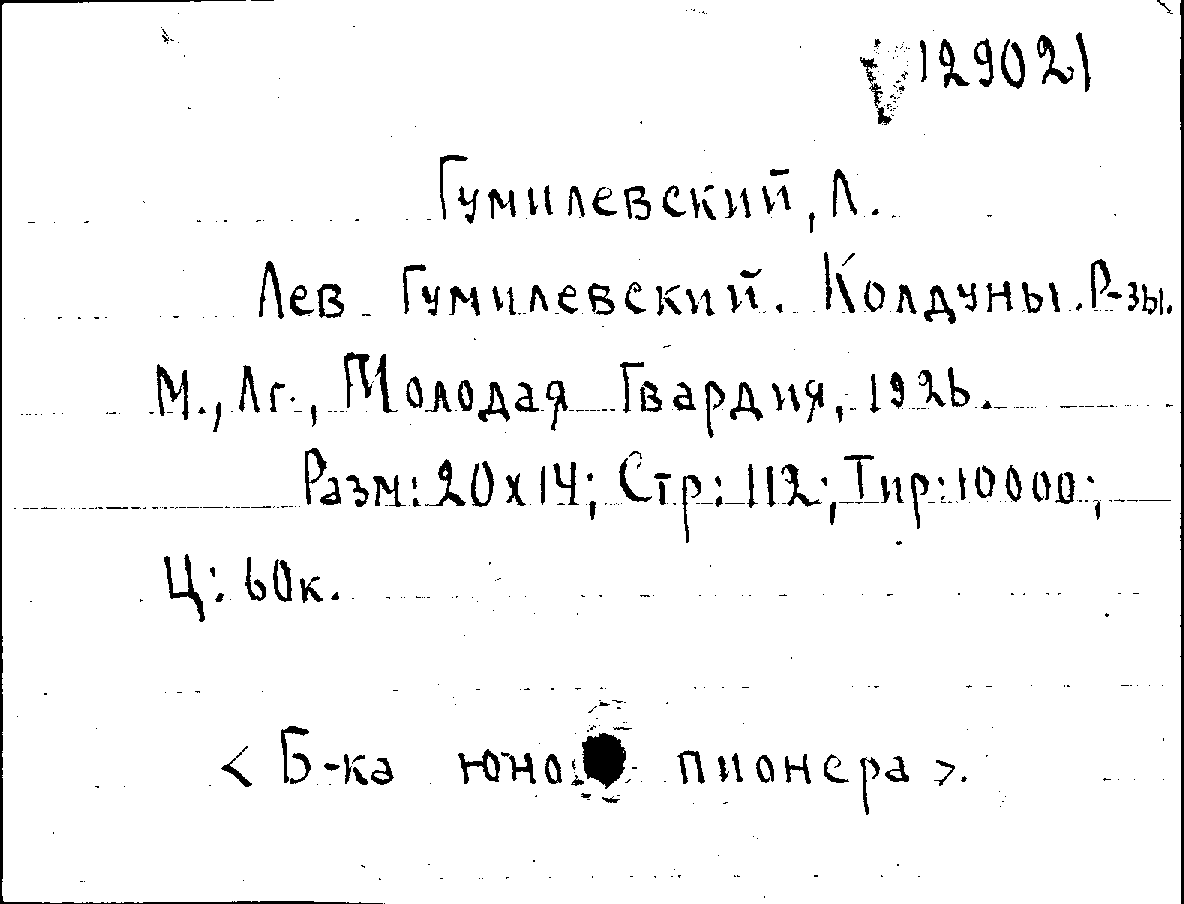 V 129021
Гумилевский, Л.
Лев Гумилевский. Колдуны. Р-зы.
М., Лг., Молодая Гвардия, 1926.
Разм: 20х14; Стр: 112; Тир: 10000;
Ц: 60к.
< Б-ка юно пионера >.